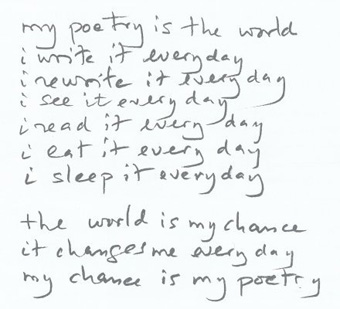 my poetry is the world
i write it everyday
i rewrite it every day
i see it every day
i read it every day
i eat it every day
i sleep it everyday
the world is my chance
it changes me every day
my chance is my poetry